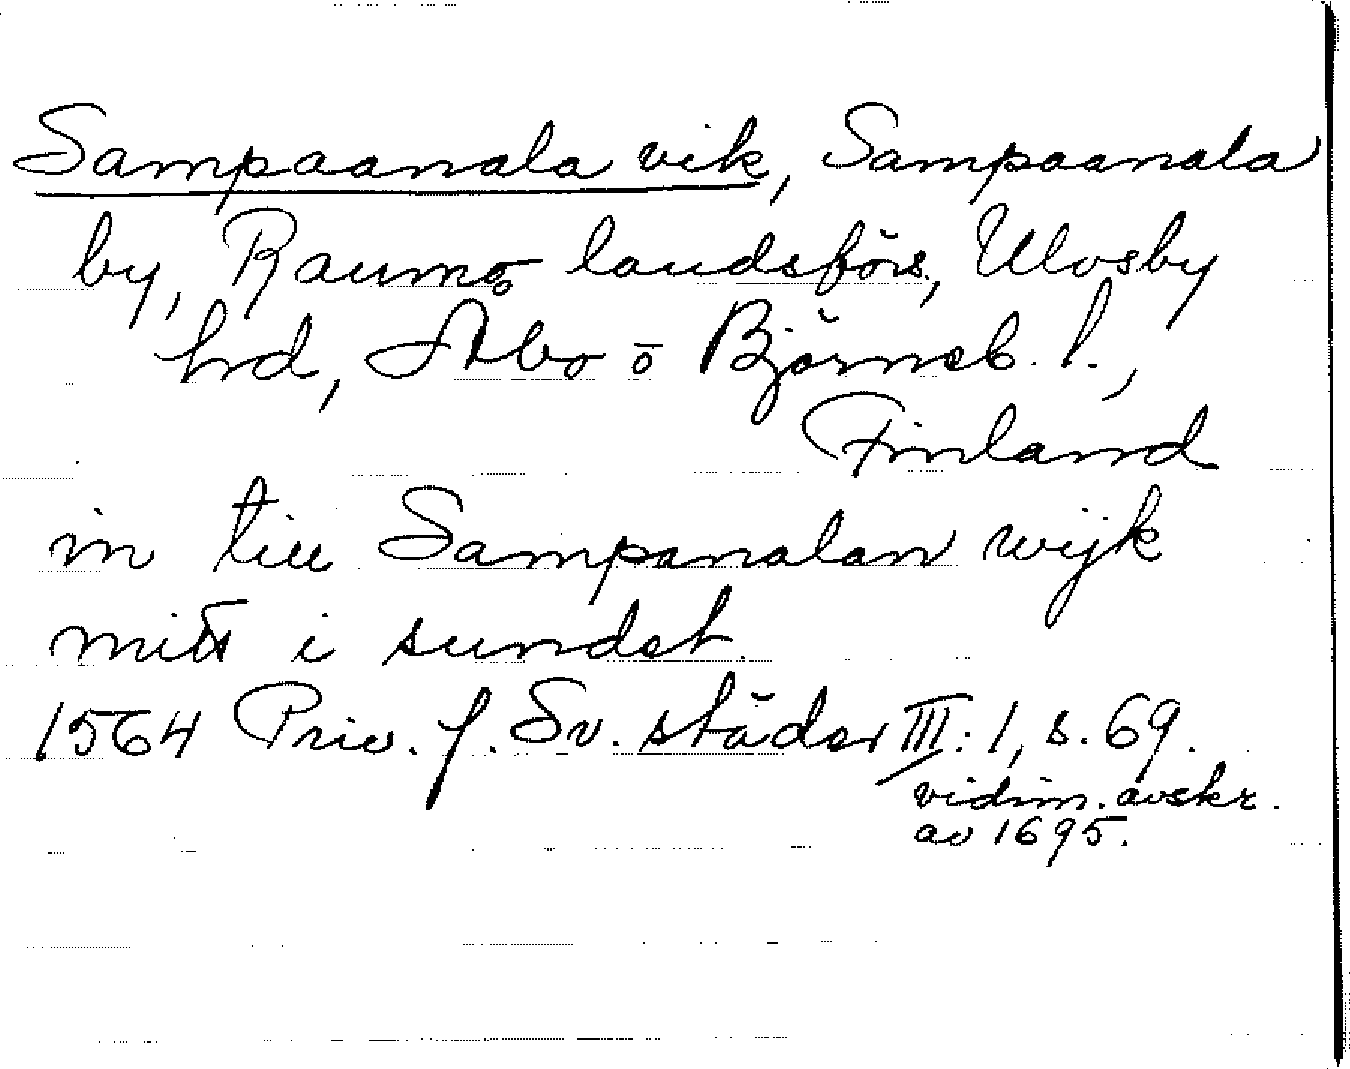 Sampaanala vik, Sampaanala
by, Raumo landsförs., Ulvsby
hrd, Åbo o Björneb. l.,
Finland
in till Sampanalan wijk
mitt i sundet.
1564 Priv. f. Sv. städer III: 1, s. 69.
vidim. avskr.
av 1695.